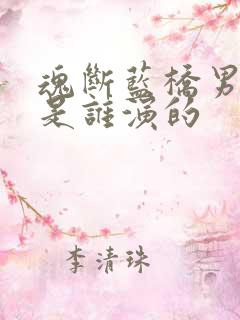 魂斷藍橋男
是誰演的
李清珠